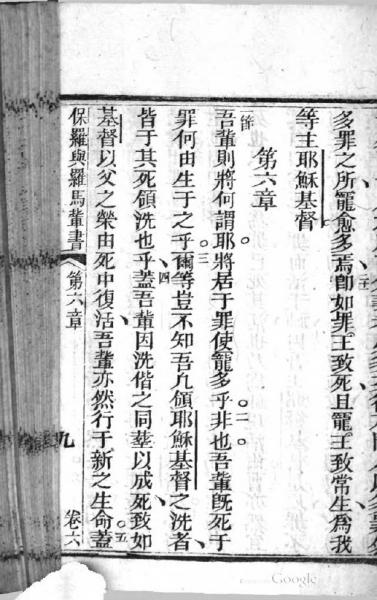 多罪之所寵愈多焉卽如罪王致死且寵王致常生爲我
等主耶穌基督
第六章
一節吾輩則將何謂耶將居于罪使寵多乎二非也吾輩旣死于
罪何由生于之乎三爾等豈不知吾凡領耶穌基督之洗者
皆于其死領洗也乎四葢吾輩因洗偕之同葬以成死致如
基督以父之榮由死中復活吾輩亦然行于新之生命五葢
保羅與羅馬輩書 第六章 九 卷六
Google